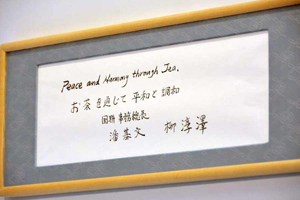 Peace and Harmony through Tea.
お茶を通じて平和と調和
国連事務総長
潘基文 柳淳澤